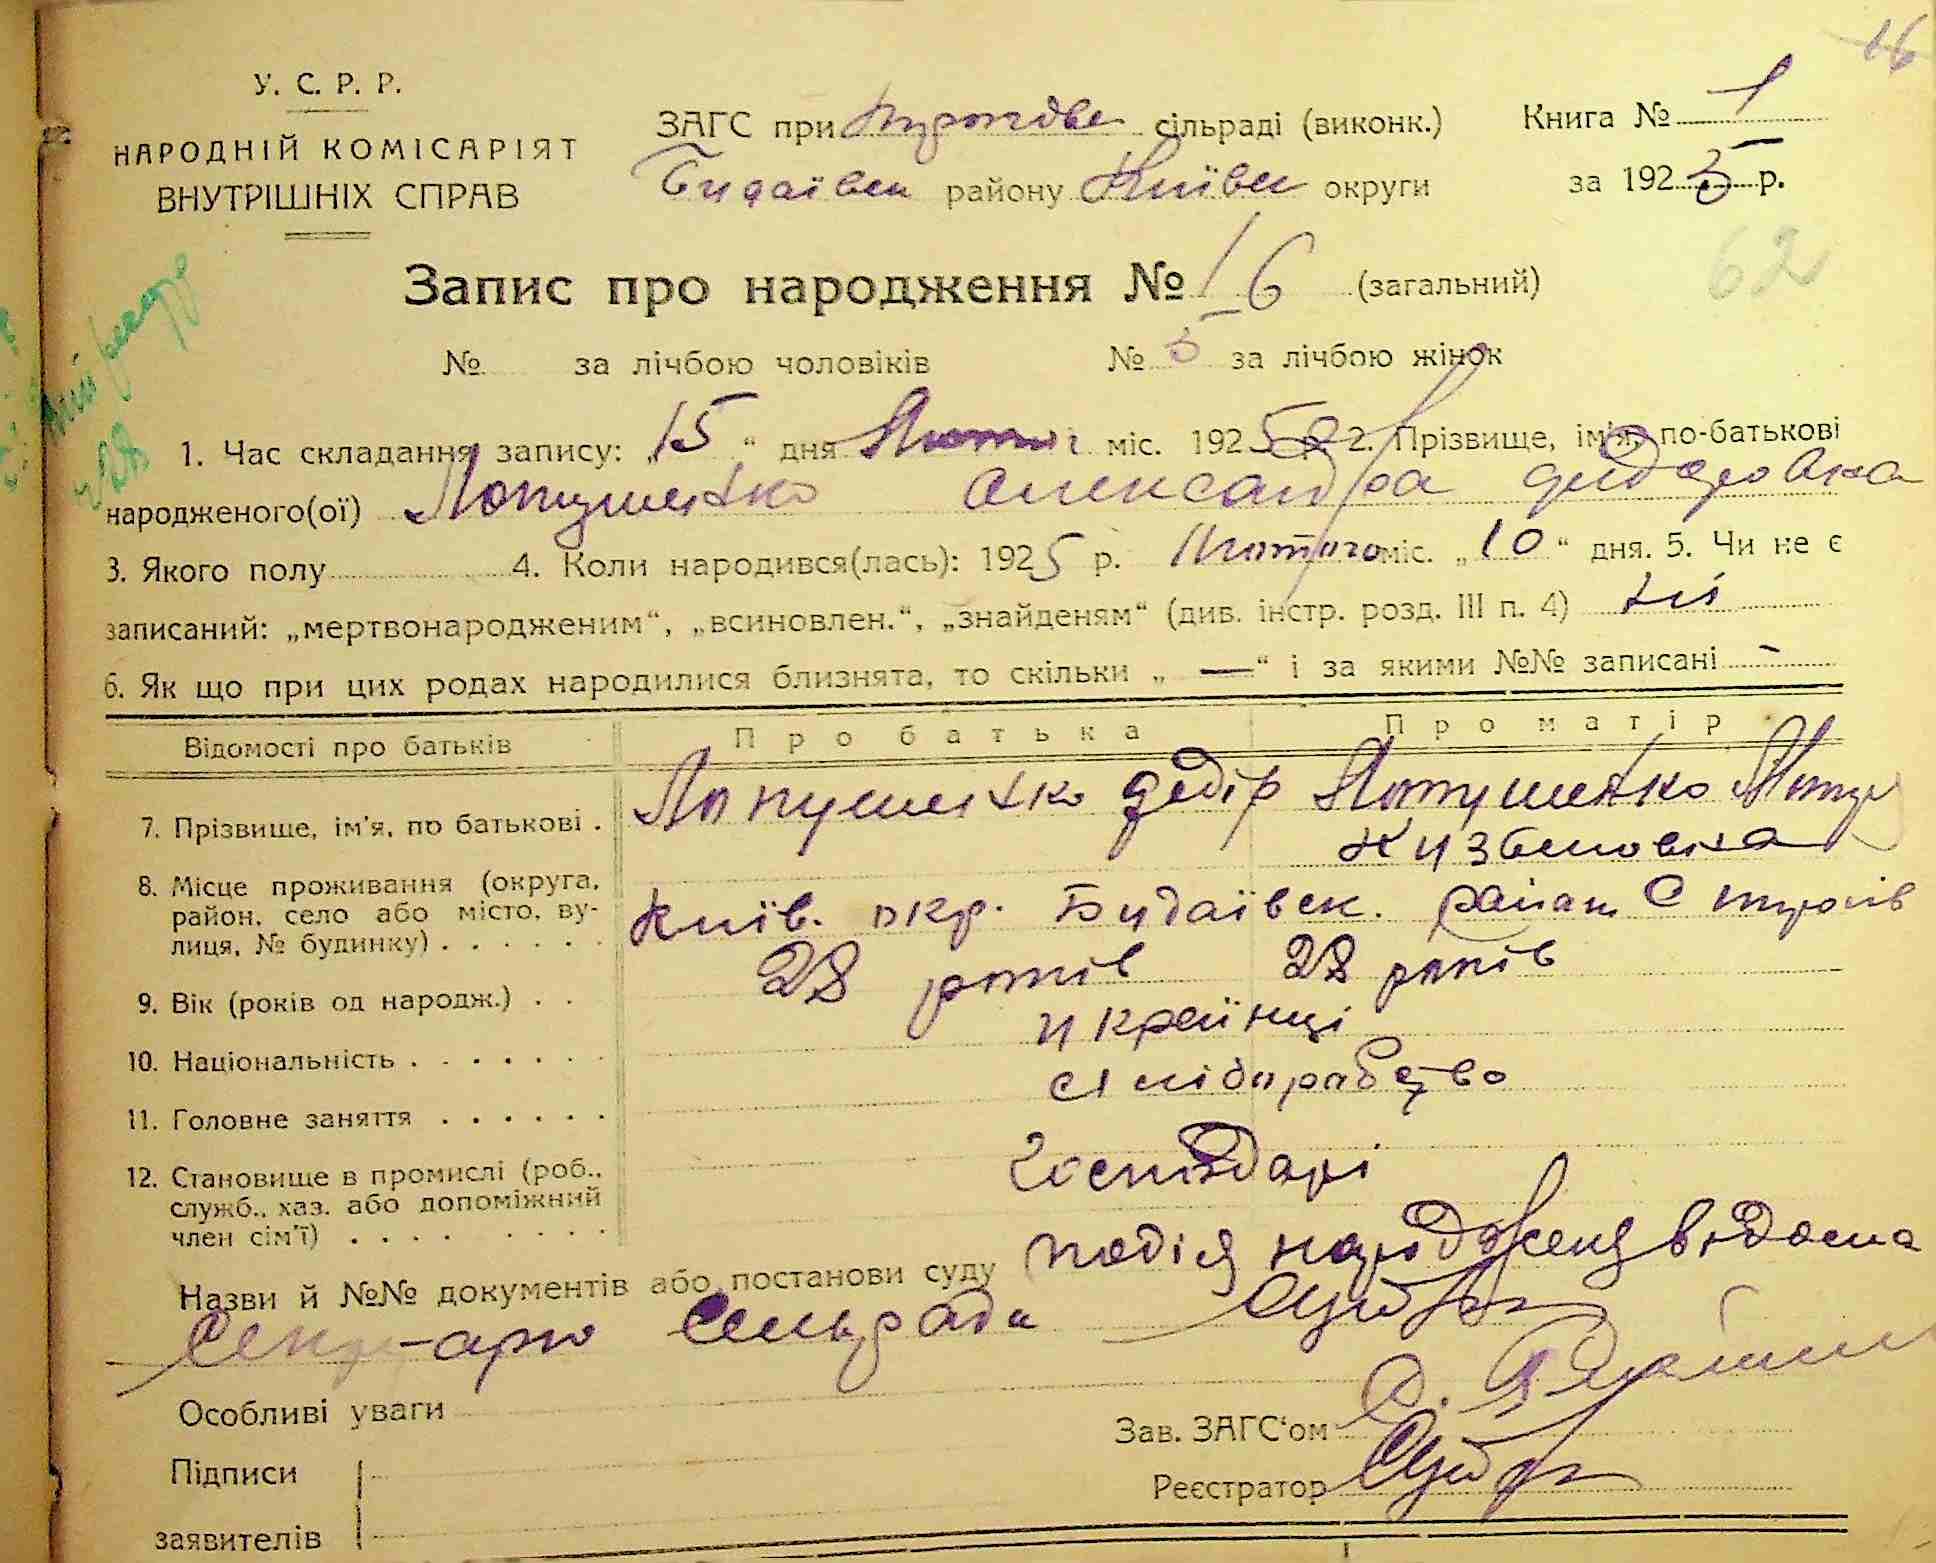 16
У. С. Р. Р.
НАРОДНІЙ КОМІСАРІЯТ
ВНУТРІШНІХ СПРАВ
ЗАГС при сільраді (виконк.)
Будаївськ району Київськ округи
Книга № 1
за 1925 р.
62
Запис про народження № 16 (загальний)
№ за лічбою чоловіків № 5 за лічбою жінок
1. Час складання запису: „15“ дня Лютого міс. 1925 р. 2. Прізвище, ім'я, по-батькові
народженого(ої) Лопушенко Александра
3. Якого полу 4. Коли народився(лась): 1925 р. Лютого міс. „10“ дня. 5. Чи не є
записаний: „мертвонародженим“, „всиновлен.“, „знайденям“ (див. інстр. розд. III п. 4) ні
6. Як що при цих родах народилися близнята, то скільки „ — “ і за якими №№ записані -
Відомості про батьків Про батька Про матір
7. Прізвище, ім'я, по батькові . Лопушенко Федір Лопушенко
8. Місце проживання (округа, район, село або місто, вулиця, № будинку) . . . . . . Київ. окр. Будаївськ. район С
9. Вік (років од народж.) . . 28 років 28 років
10. Національність . . . . . . . українці
11. Головне заняття . . . . . . хліборобство
12. Становище в промислі (роб., служб., хаз. або допоміжний член сім'ї) . . . . . . . . господарі
Назви й №№ документів або постанови суду подія народження відома
Секретарю Сельради
Особливі уваги
Зав. ЗАГС'ом
Підписи
Реєстратор
заявителів